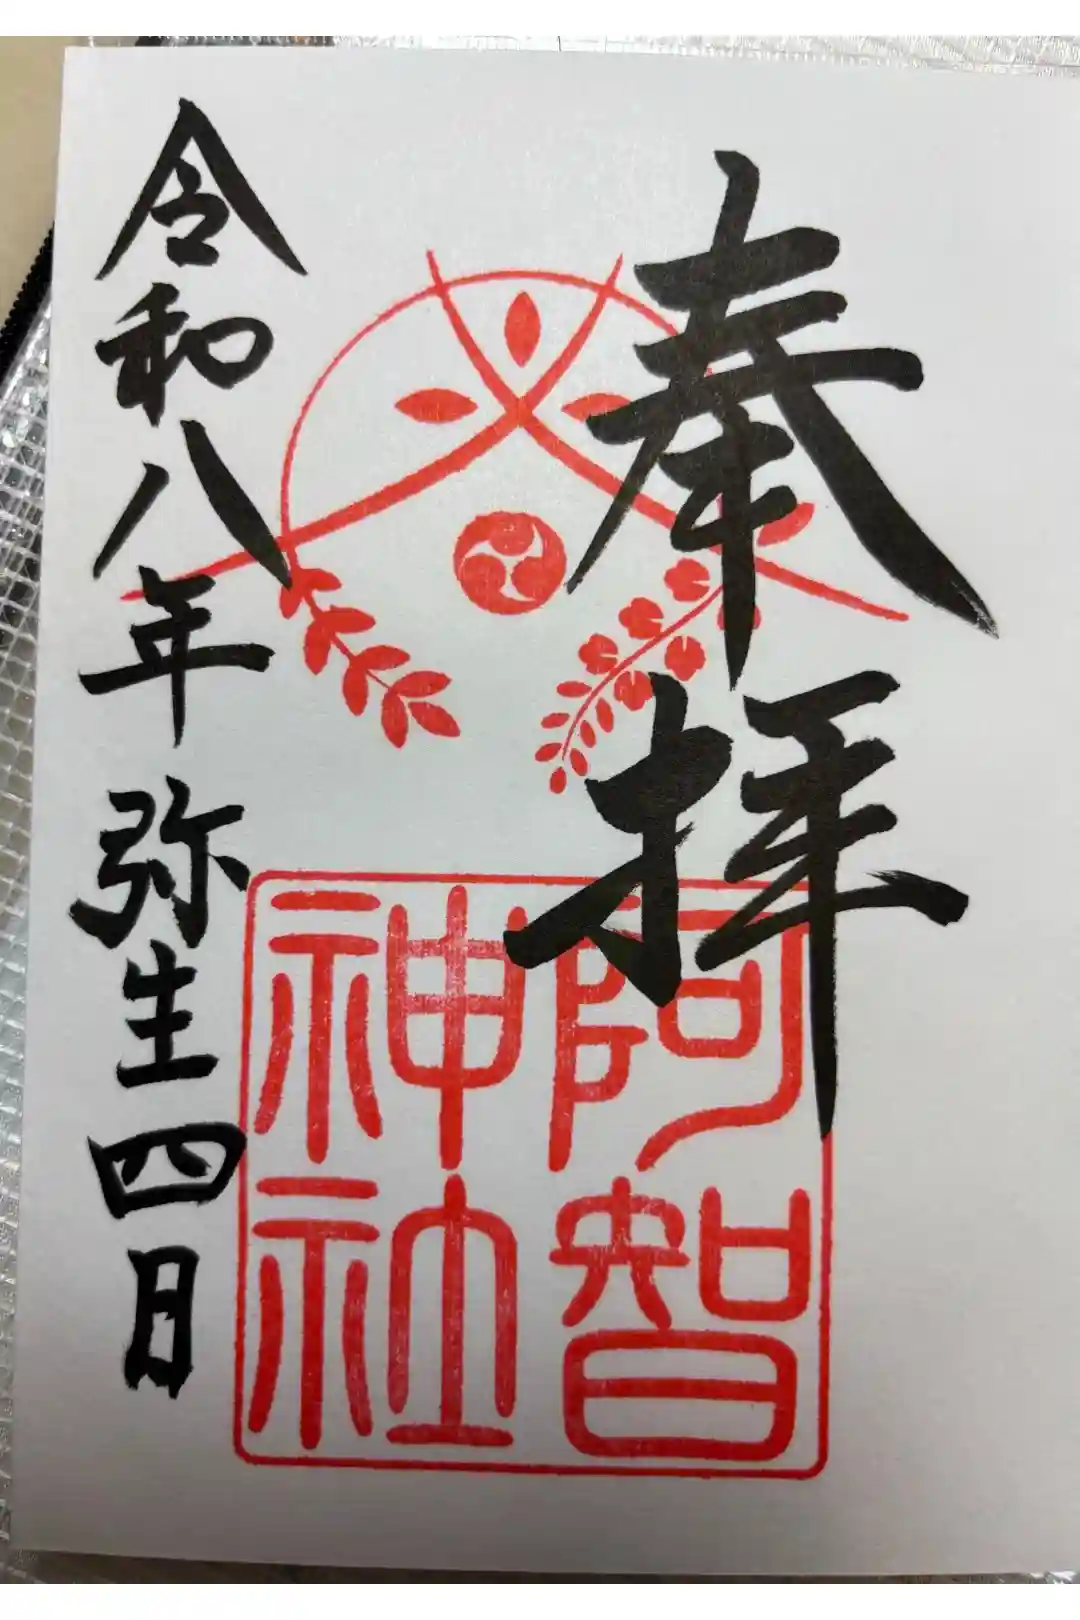 奉拝
阿智
神社
令和八年 弥生四日